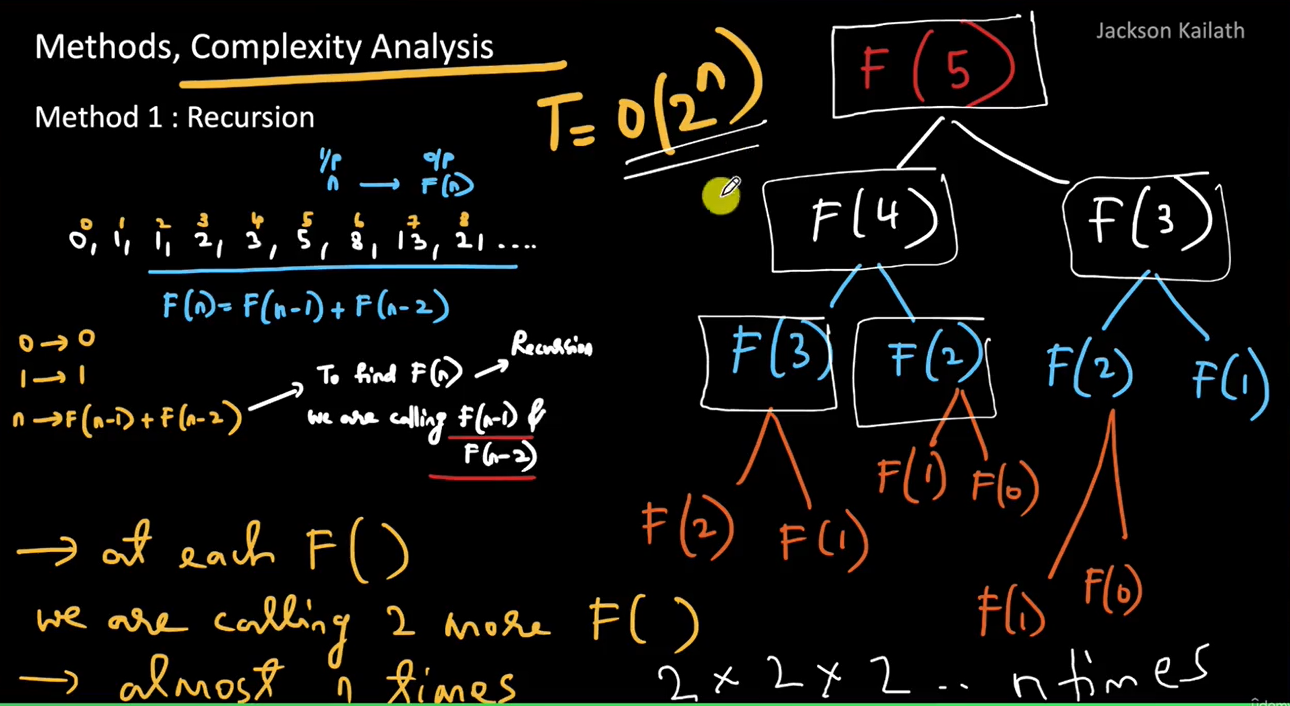 Jackson Kailath
Methods, Complexity Analysis
Method 1 : Recursion
T = O(2ⁿ)
I/P O/P
n → F(n)
0 1 2 3 4 5 6 7 8
0, 1, 1, 2, 3, 5, 8, 13, 21 ....
F(n) = F(n-1) + F(n-2)
0 → 0
1 → 1
n → F(n-1) + F(n-2)
To find F(n) → Recursion
we are calling F(n-1) &
F(n-2)
→ at each F( )
we are calling 2 more F( )
→ almost n times
F(5)
F(4) F(3)
F(3) F(2) F(2) F(1)
F(2) F(1) F(1) F(0) F(1) F(0)
2 × 2 × 2 .. n times